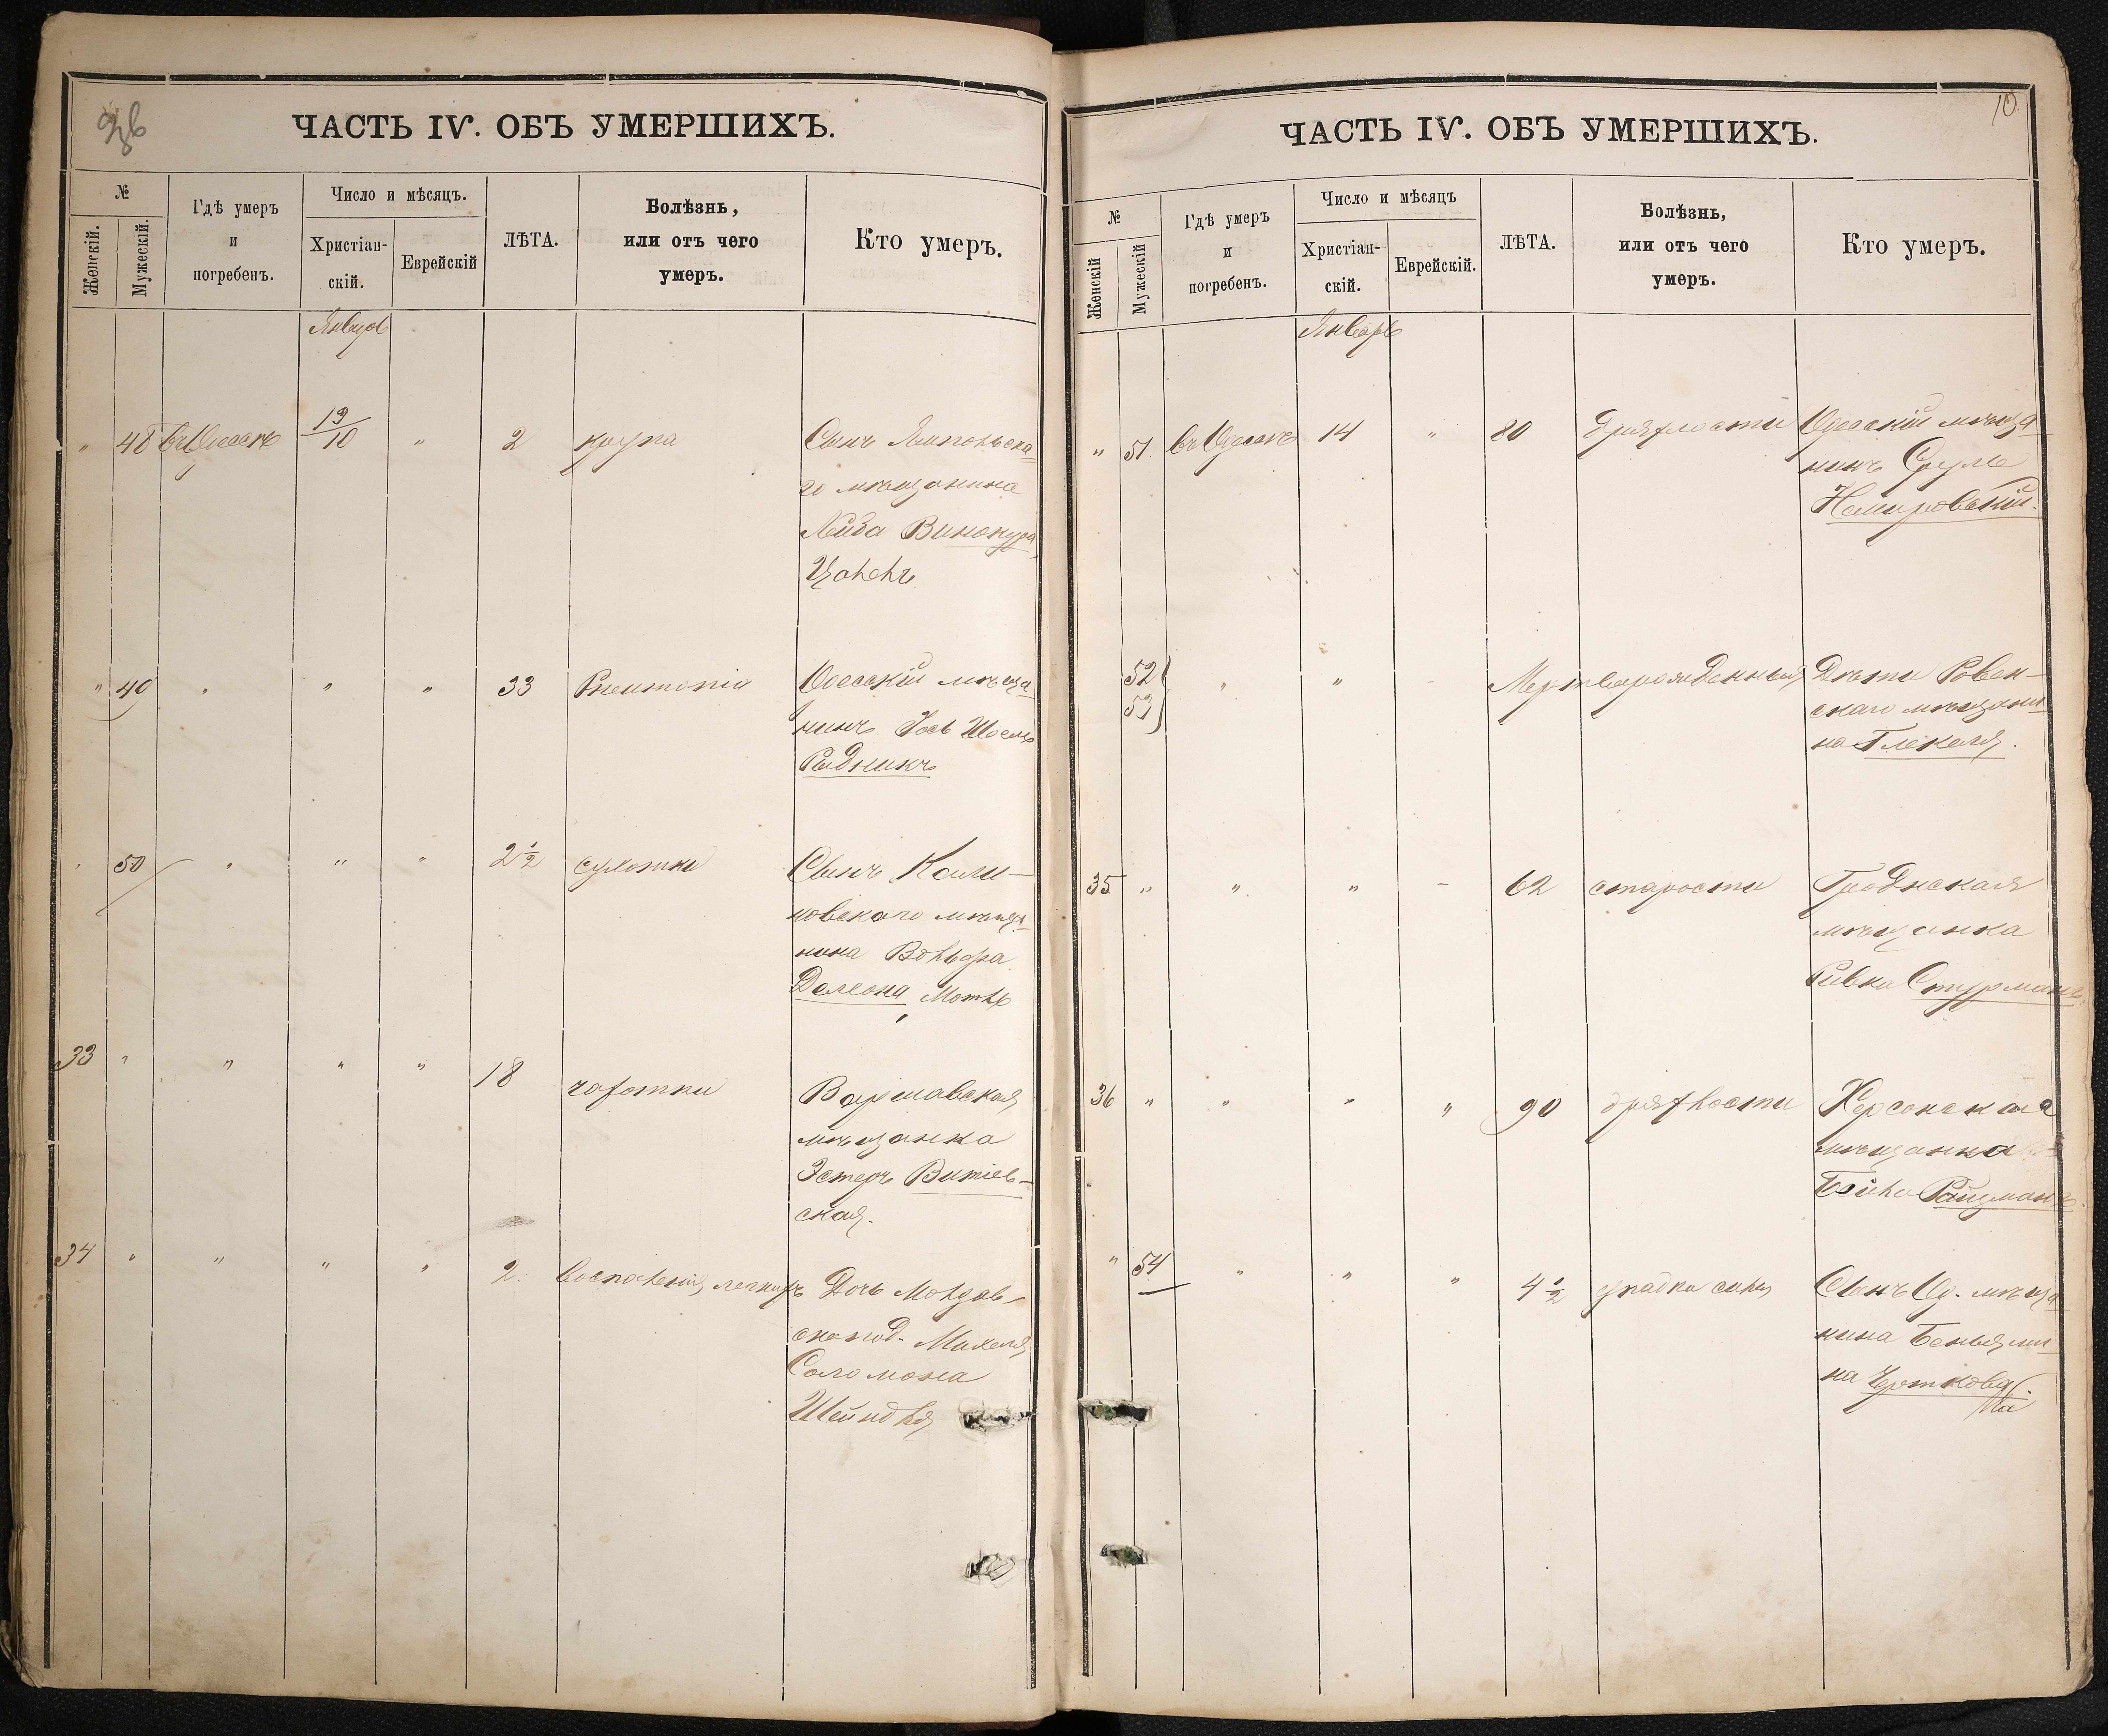 ЧАСТЬ IV. ОБЪ УМЕРШИХЪ.
№
Женскій.
Мужескій.
Гдѣ умеръ
и
погребенъ.
Число и мѣсяцъ.
Христіан-
скій.
Еврейскій
ЛѢТА.
Болѣзнь,
или отъ чего
умеръ.
Кто умеръ.
Январь
" 48 въ Одессѣ 13/10 " 2 крупа Сынъ Ямпольска-
го мѣщанина
Лейба Винокура,
" 49 " " " 33 Pneumonia Одесскій мѣща-
нинъ Іось
Рыдникъ
" 50 " " " 2 1/2 сухотки Сынъ Кали-
новскаго мѣща-
нина Вольфа
Мотль
33 " " " " 18 чахотки Варшавская
мѣщанка
Эстеръ Витіев-
ская.
34 " " " " 2 воспаленія легкихъ Дочь Молдав-
ско под. Михеля
Соломона
Шейндля
ЧАСТЬ IV. ОБЪ УМЕРШИХЪ.
10
№
Женскій
Мужескій
Гдѣ умеръ
и
погребенъ.
Число и мѣсяцъ
Христіан-
скій.
Еврейскій.
ЛѢТА.
Болѣзнь,
или отъ чего
умеръ.
Кто умеръ.
Январь
" 51. въ Одессѣ 14 " 80 дряхлости Одесскій мѣща-
нинъ Сруль
Немировскій.
52 53 " " - Мертворожденные Дѣти Ровен-
скаго мѣщани-
на Глекеля.
35 " " " - 62 старости Гроднская
мѣщанка
Ривка Стурманъ.
36 " " " " 90 дряхлости Херсонская
мѣщанка
Бейла Райцманъ.
" 54 " " " 4 1/2 упадка силъ Сынъ Од. мѣща-
нина Беньями-
на Черткова